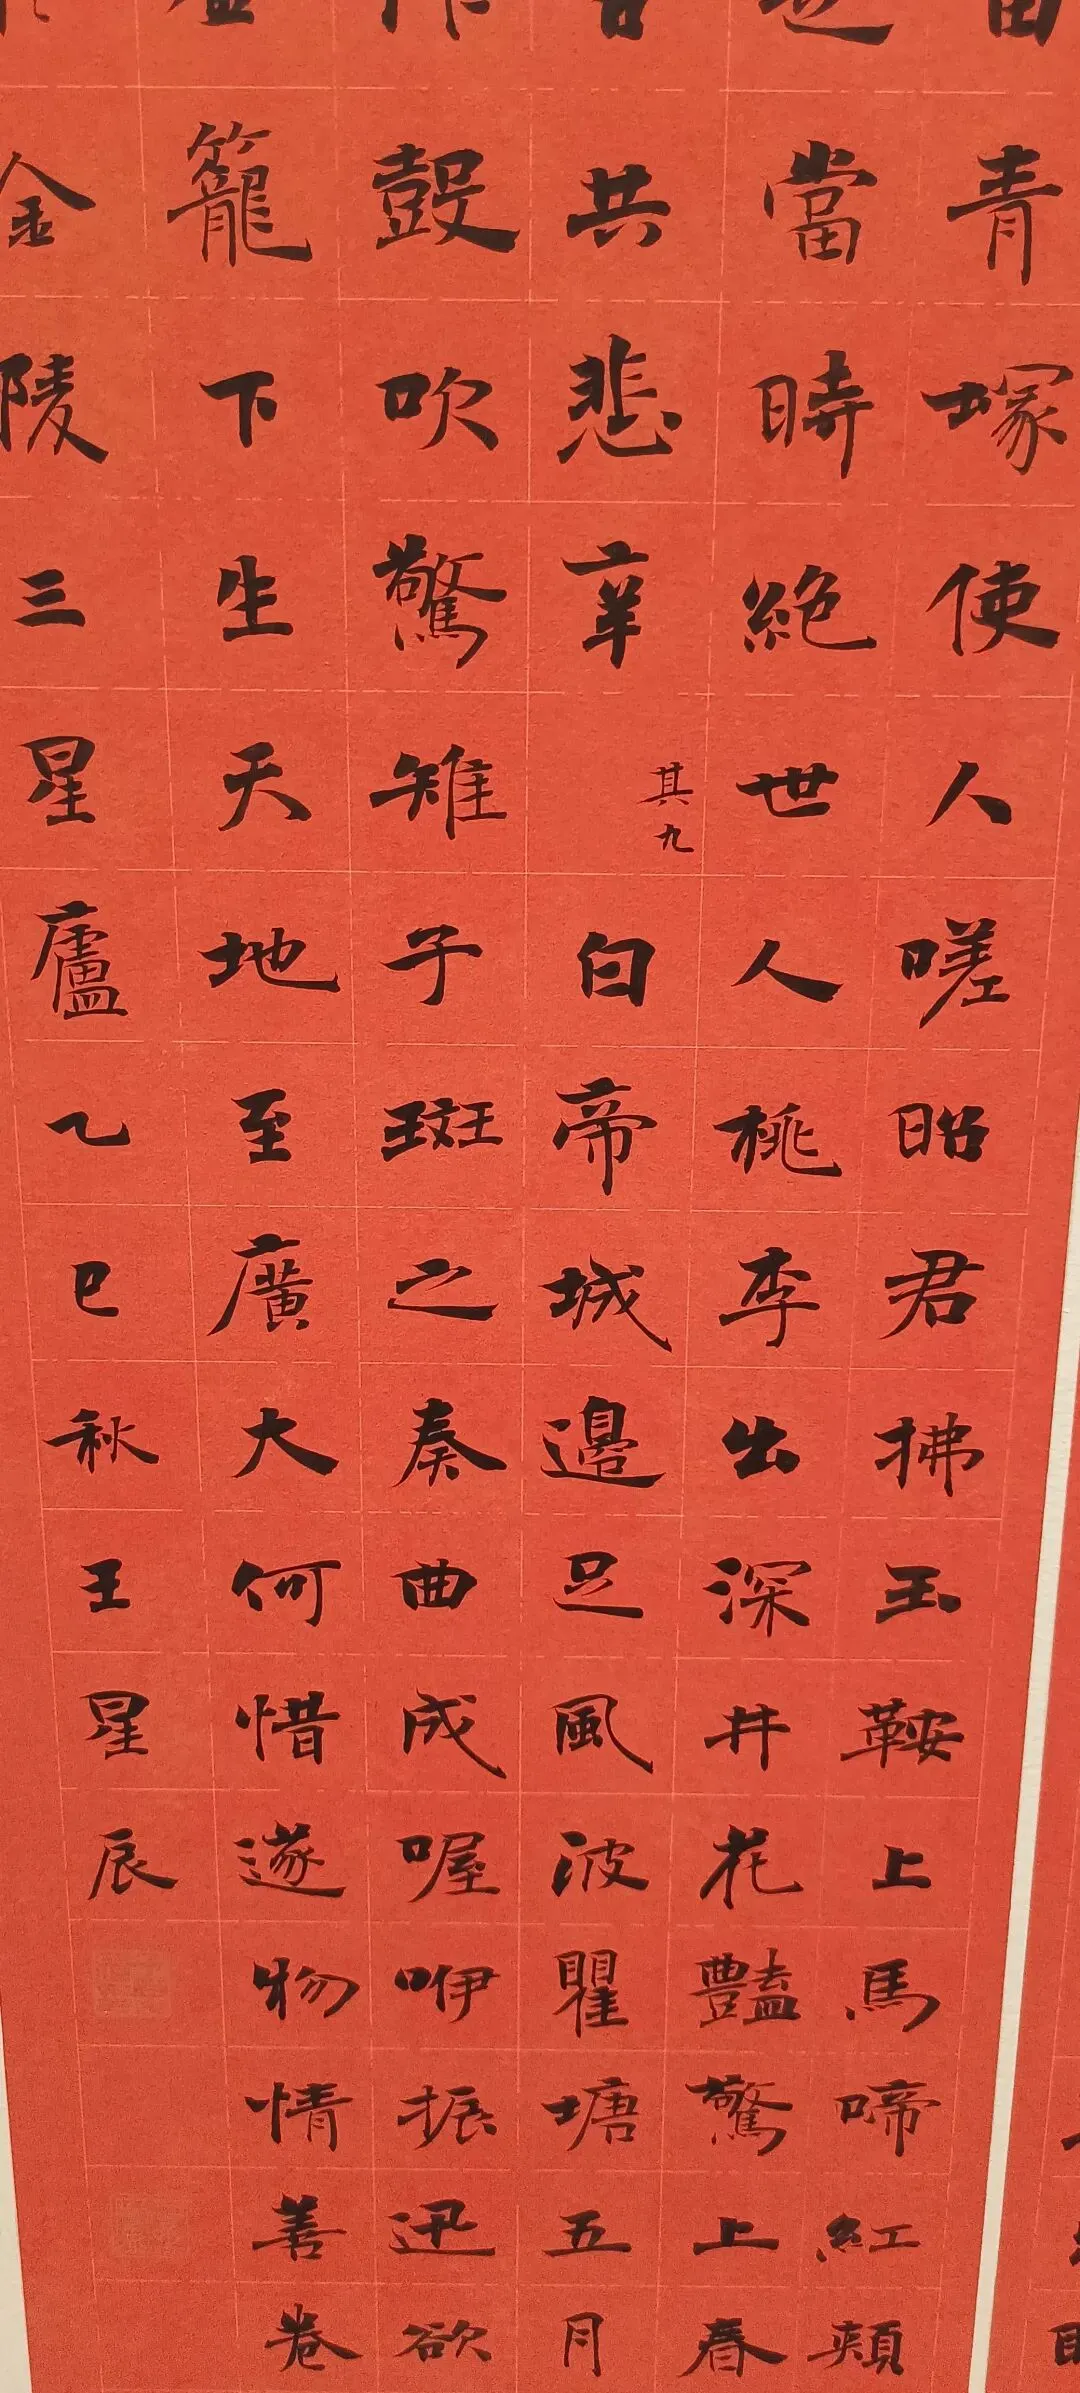 青塚使人嗟昭君拂玉鞍上馬啼紅頰
當時絶世人桃李出深井花豔驚上春
共悲辛 其九 白帝城邊足風波瞿塘五月
鼓吹驚雉子斑之奏曲成喔咿振迅欲
籠下生天地至廣大何惜遂物情善卷
金陵三星廬乙巳秋王星辰